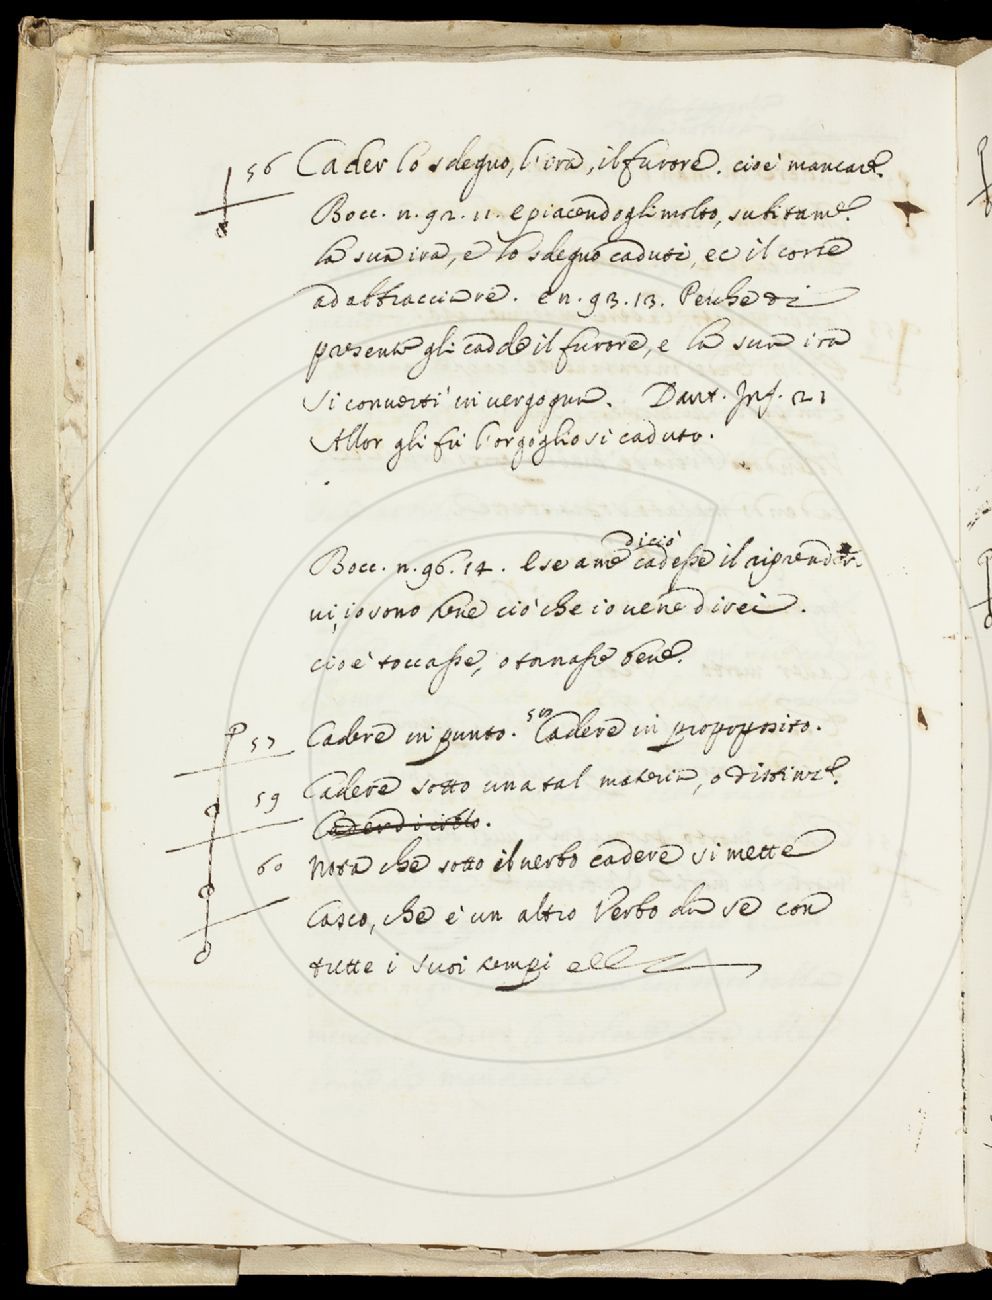 56 Cader lo sdegno, l'ira, il furore. cioè mancare.
Bocc. n. 92. 11. e piacendogli molto, subitame.
la sua ira, e lo sdegno caduti, ec il corse
ad abbracciare. e n. 93. 13. Perche di
presente gli cadde il furore, e la sua ira
si convertì in vergogna. Dant. Inf. 21
Allor gli fù l'orgoglio si caduto.
diciò
Bocc. n. 96. 14. E se a me cadesse il riprender-
vi, io sono bene ciò che io vene direi.
cioè toccasse, o tornasse bene.
57 Cadere in punto. 58 Cadere in propoposito.
59 Cadere sotto una tal materia, o distinz.e.
Cader di collo.
60 Nota che sotto il verbo cadere si mette
Casco, che è un altro Verbo da se con
tutte i suoi tempi